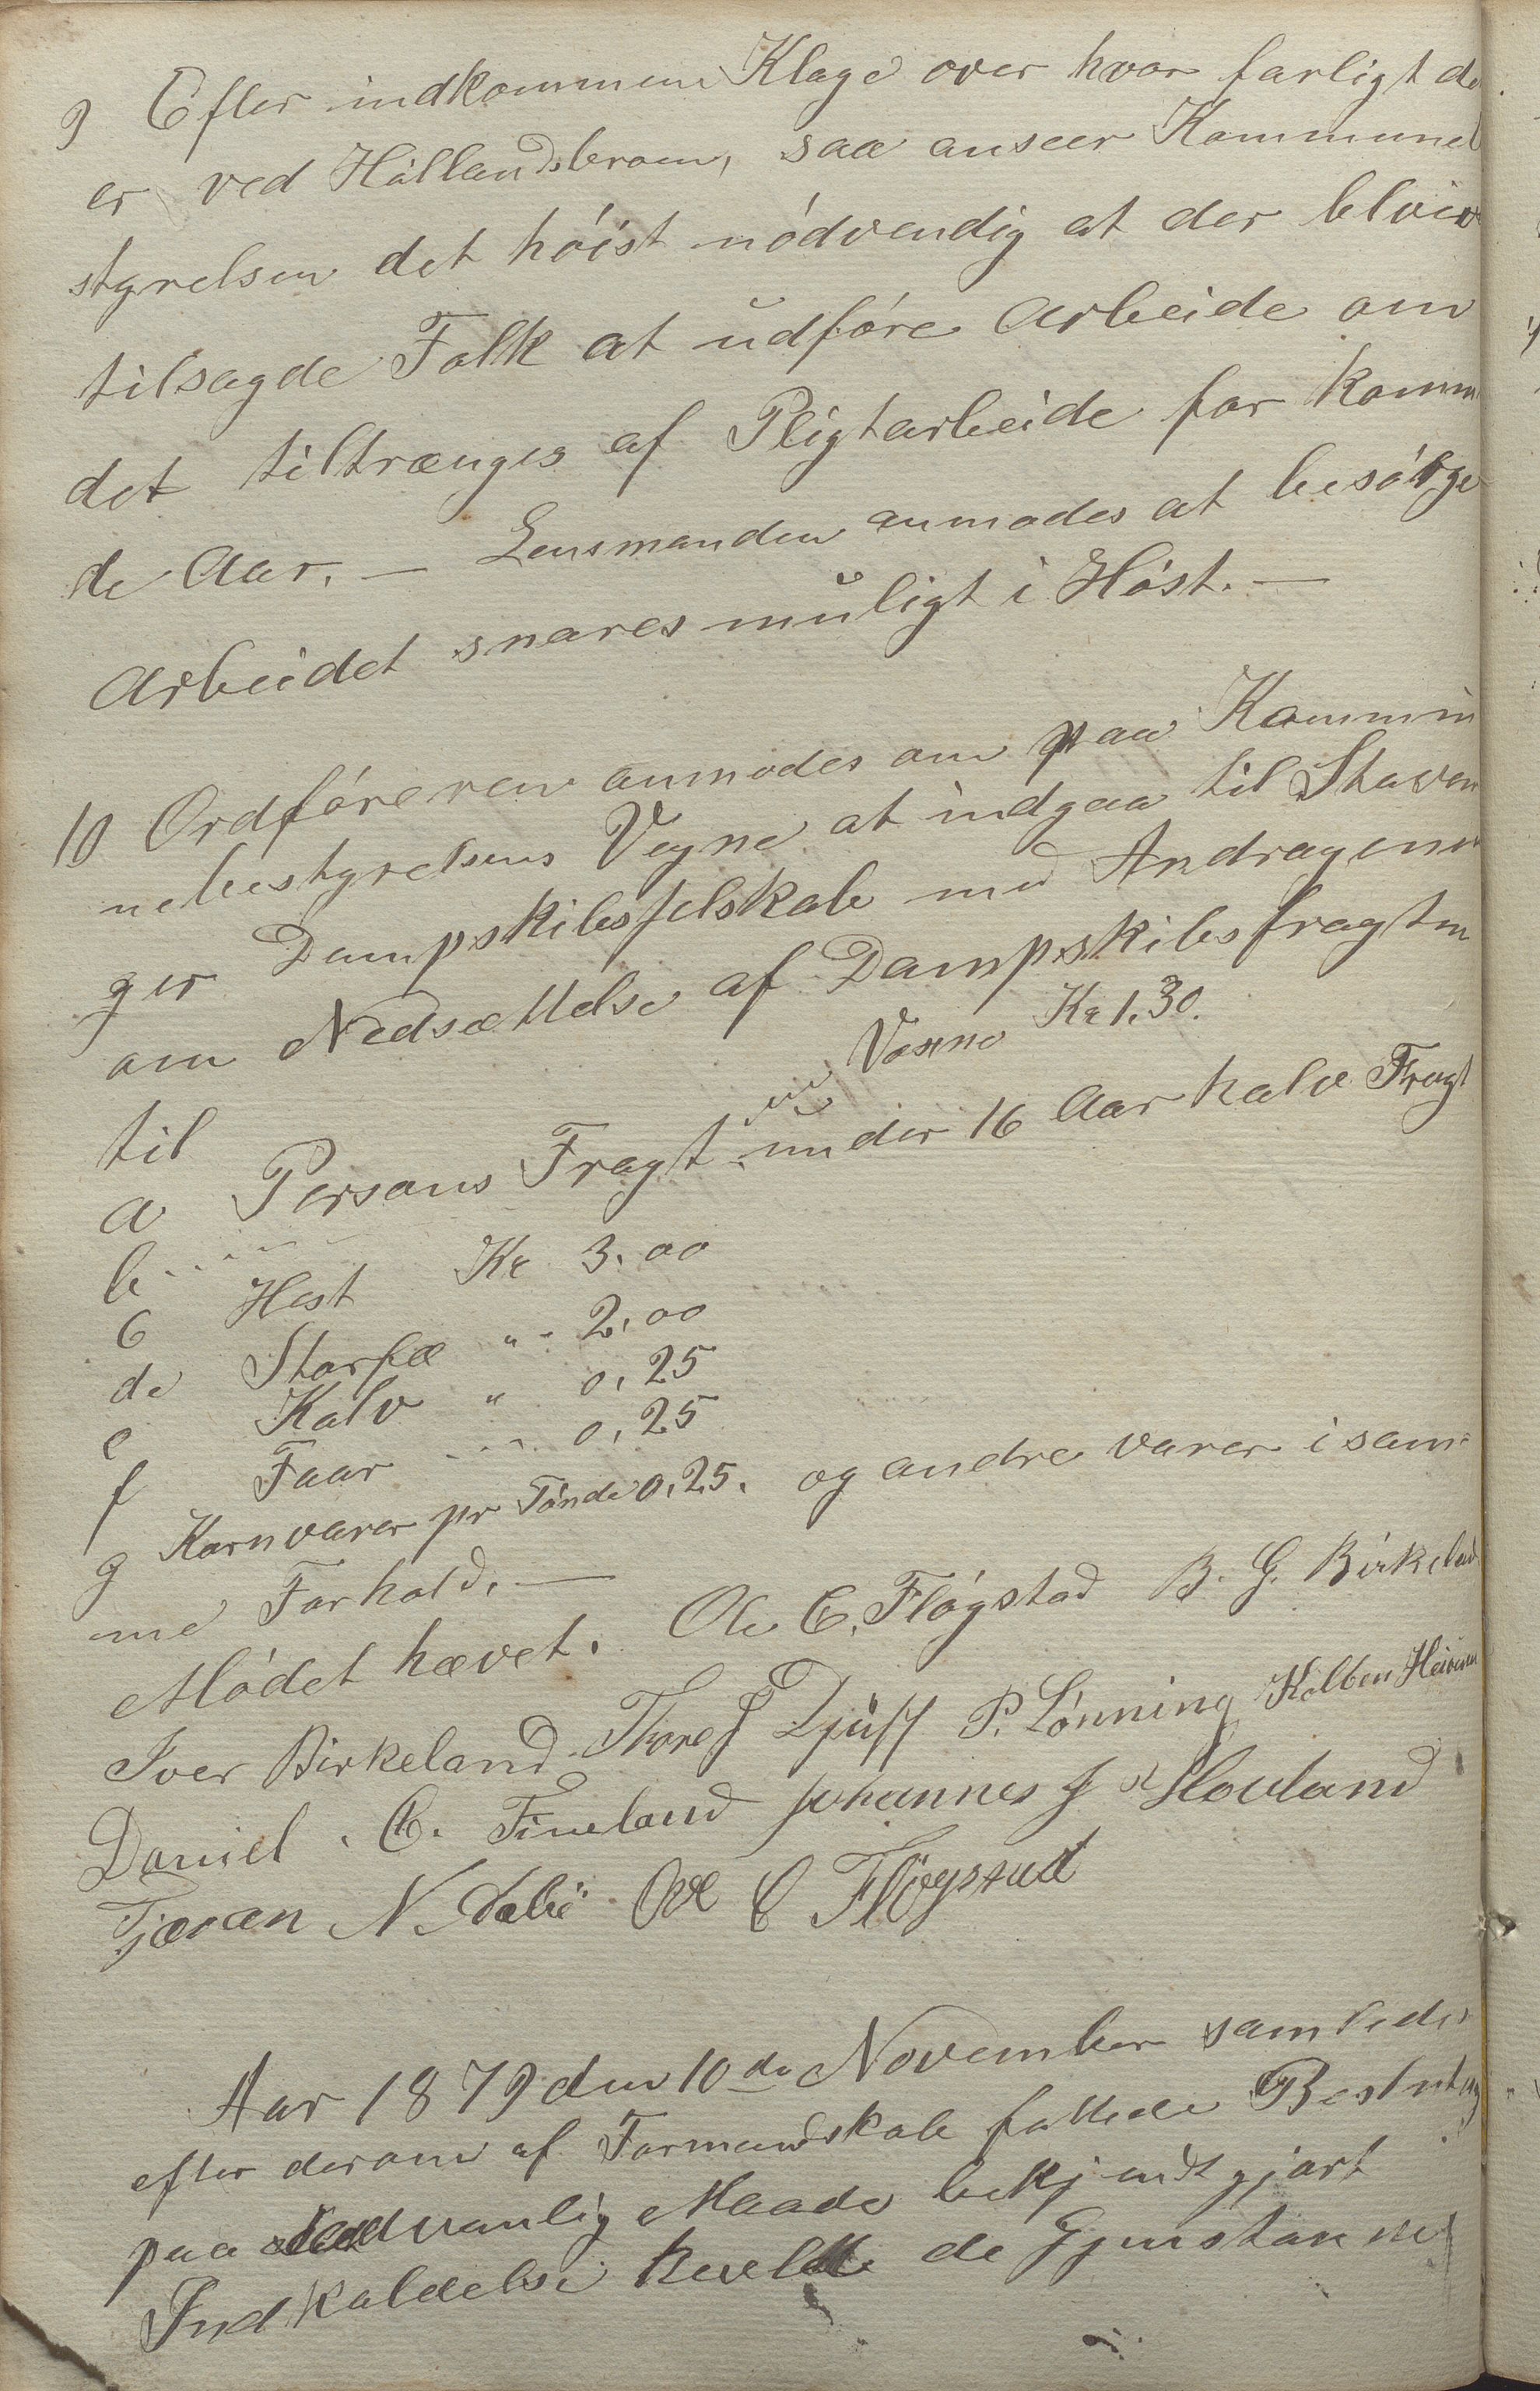 9 Efter indkommen Klage over hvor farligt de
er ved Hóllandsbroen, saa anseer Kommunel
styrelsen det höist nödvendig at der bliver
tilsagde Folk at udföre Arbeide om
det tiltrænges af Pligtarbeide for komm
de Aar. — Lensmanden anmodes at besörge
Arbeidet snares muligt i Höst. —
10 Ordföreren anmodes om paa Kommu
nebestyrelsens Vegne at indgaa til Stavan
ger Dampskibsselskab med Andragende
om Nedsættelse af Dampskibsfragten
til
a Persons Fragt Voxne Kr 1.30.
b " " under 16 Aar halv Fragt
c Hest Kr 3.00
de Storfæ " " 2.00
e Kalv " 0,25
f Faar " " 0,25
g Kornvarer pr Tönde 0,25. og andre varer i sam-
me Forhold. —
Mödet hævet. Ole C. Flógstad B. G. Birkeland
Iver Birkeland Thore J Djuff P. Lónning Kolben Heien
Daniel C. Fineland Johannes J Hovland
Tjæran N Ole C Flögstad
Aar 1879 den 10de November samledes
efter derom af Formandskab fattede Beslutng
paa sædvanlig Maade bekjendtgjort
Indkaldelse de Gjenstanne